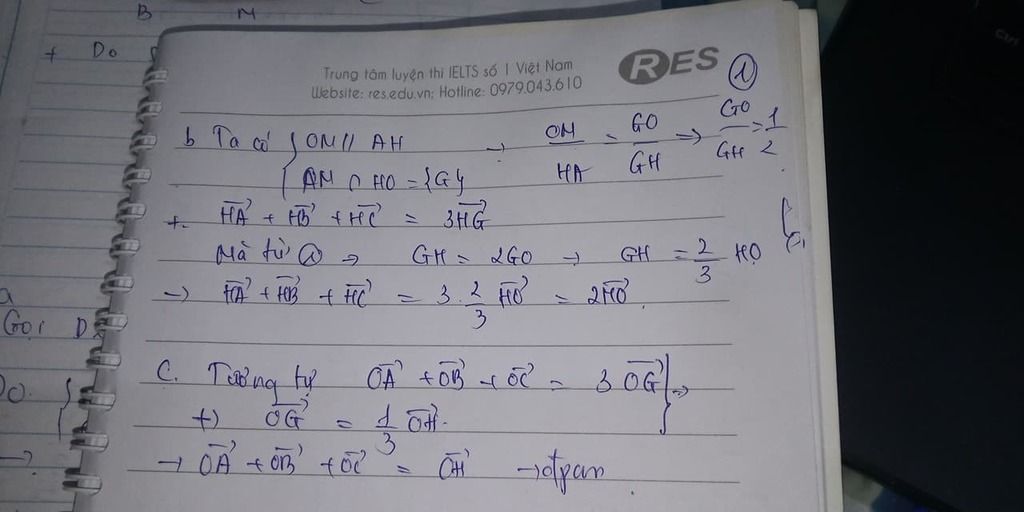 B M
+ Do
Trung tâm luyện thi IELTS số 1 Việt Nam
RES
Website: res.edu.vn; Hotline: 0979.043.610
①
b Ta có { OM // AH → OM/HA = GO/GH → GO/GH = 1/2
AM ∩ HO = {G}
+. HA→ + HB→ + HC→ = 3HG→
Mà từ ① → GH = 2GO → GH = 2/3 HO
→ HA→ + HB→ + HC→ = 3 . 2/3 HO→ = 2HO→.
Gọi D
C. Tương tự OA→ + OB→ + OC→ = 3 OG→ } →
+) OG→ = 1/3 OH→.
→ OA→ + OB→ + OC→ = OH→ → đpcm